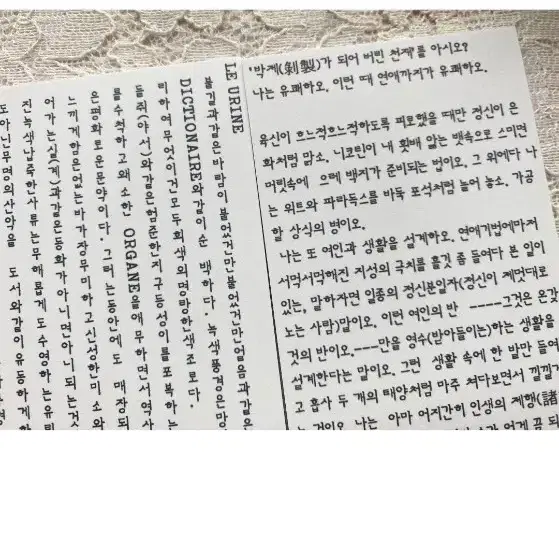 LE URINE
불길과같은바람이불었건만불었건만얼음과같은
DICTIONAIRE와같이순 백하다. 녹색풍경은망
리하여무엇이건모두회색의명랑한색조로다.
들쥐(야서)와같은험준한지구등성이를포복하는
를수척하고왜소한 ORGANE을애무하면서역사
은평화로운문약이다. 그러는동안에도 매장되
느끼게함은없는바가장무미하고신성한미소와
진녹색납죽한사류는무해롭게도수영하는유리
도아닌무명의산악을 도서와같이유동하게하
'박제(剝製)가 되어 버린 천재'를 아시오?
나는 유쾌하오. 이런 때 연애까지가 유쾌하오.
육신이 흐느적흐느적하도록 피로했을 때만 정신이 은
화처럼 맑소. 니코틴이 내 횟배 앓는 뱃속으로 스미면
머릿속에 으레 백지가 준비되는 법이오. 그 위에다 나
는 위트와 파라독스를 바둑 포석처럼 늘어 놓소. 가공
할 상식의 병이오.
나는 또 여인과 생활을 설계하오. 연애기법에마저
서먹서먹해진 지성의 극치를 흘깃 좀 들여다 본 일이
있는, 말하자면 일종의 정신분일자(정신이 제멋대로
노는 사람)말이오. 이런 여인의 반 ----그것은 온갖
것의 반이오.---만을 영수(받아들이는)하는 생활을
설계한다는 말이오. 그런 생활 속에 한 발만 들여
고 흡사 두 개의 태양처럼 마주 쳐다보면서 낄낄거
는 것이오. 나는 아마 어지간히 인생의 제행(諸